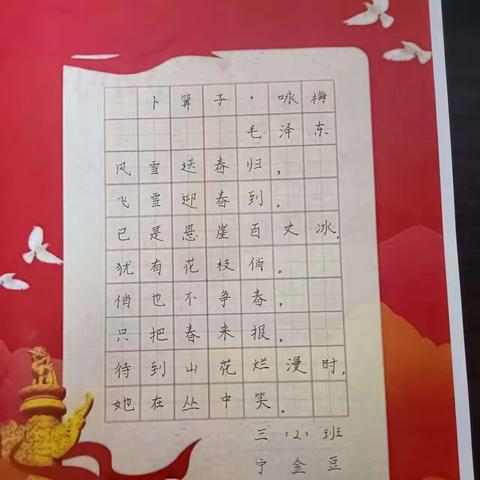 卜算子·咏梅
毛泽东
风雪送春归，
飞雪迎春到。
已是悬崖百丈冰，
犹有花枝俏。
俏也不争春，
只把春来报。
待到山花烂漫时，
她在丛中笑。
三（2）班
宁金豆